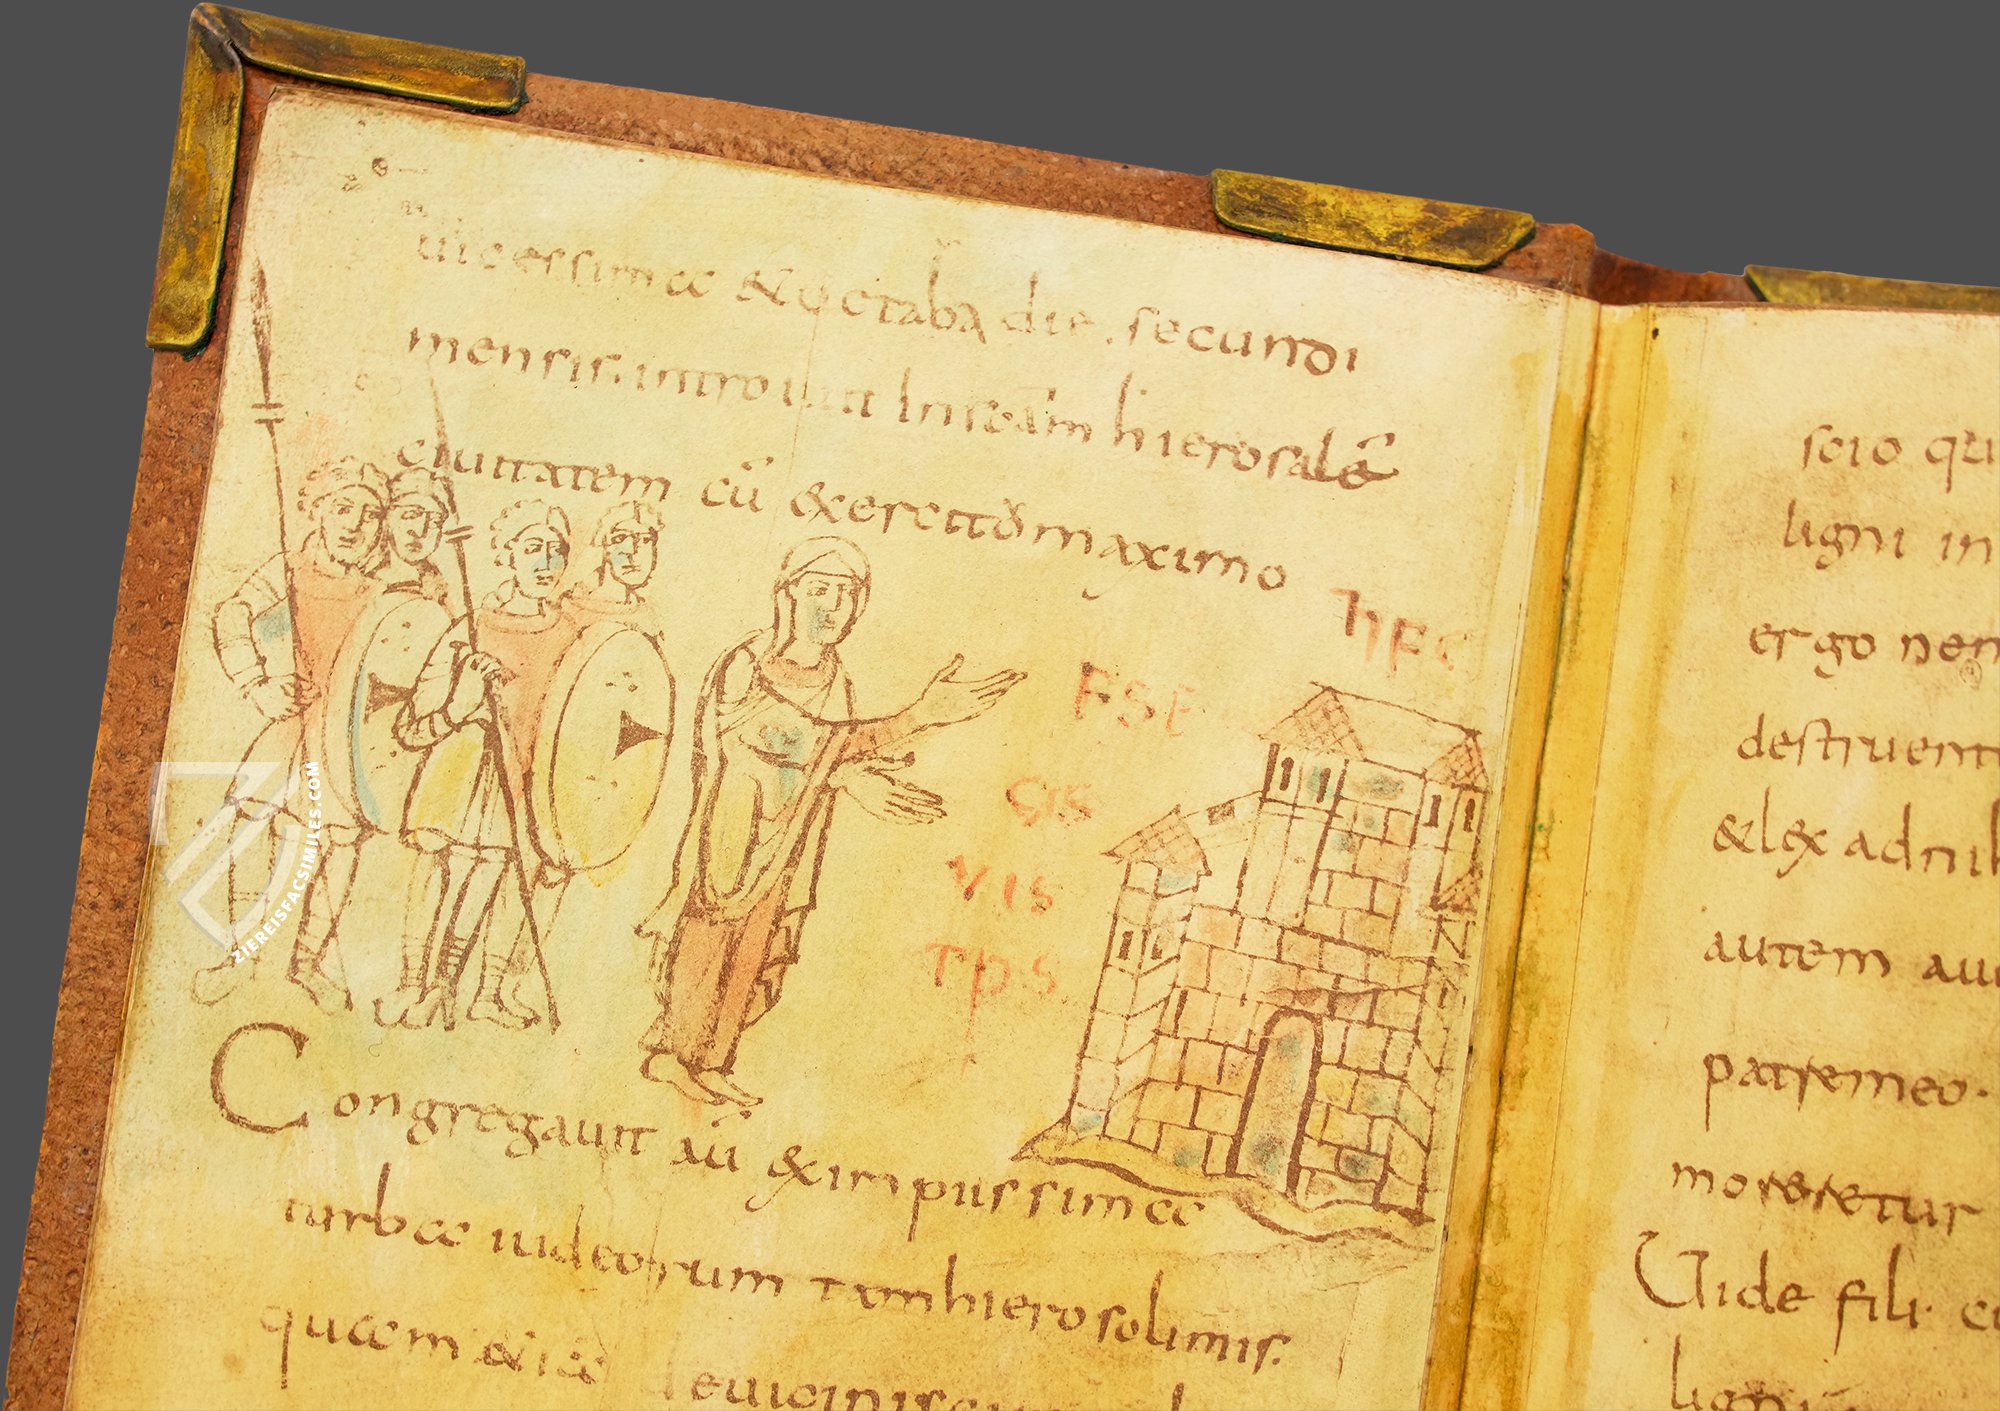 uicessima & octaba die. secundi
mensis. introiuit In scām hierosalē
ciuitatem cū exercitū maximo
hEC
FSE
CIS
VIS
TPS
Congregauit aū & impiissimae
turbae iudeorum tam hierosolimis.
quam & 
scio qu
ligni in
ergo nem
destruent
& lex ad nih
autem au
patrem eo.
moreretur
Uide fili. e
ligni
ZIEREISFACSIMILES.COM